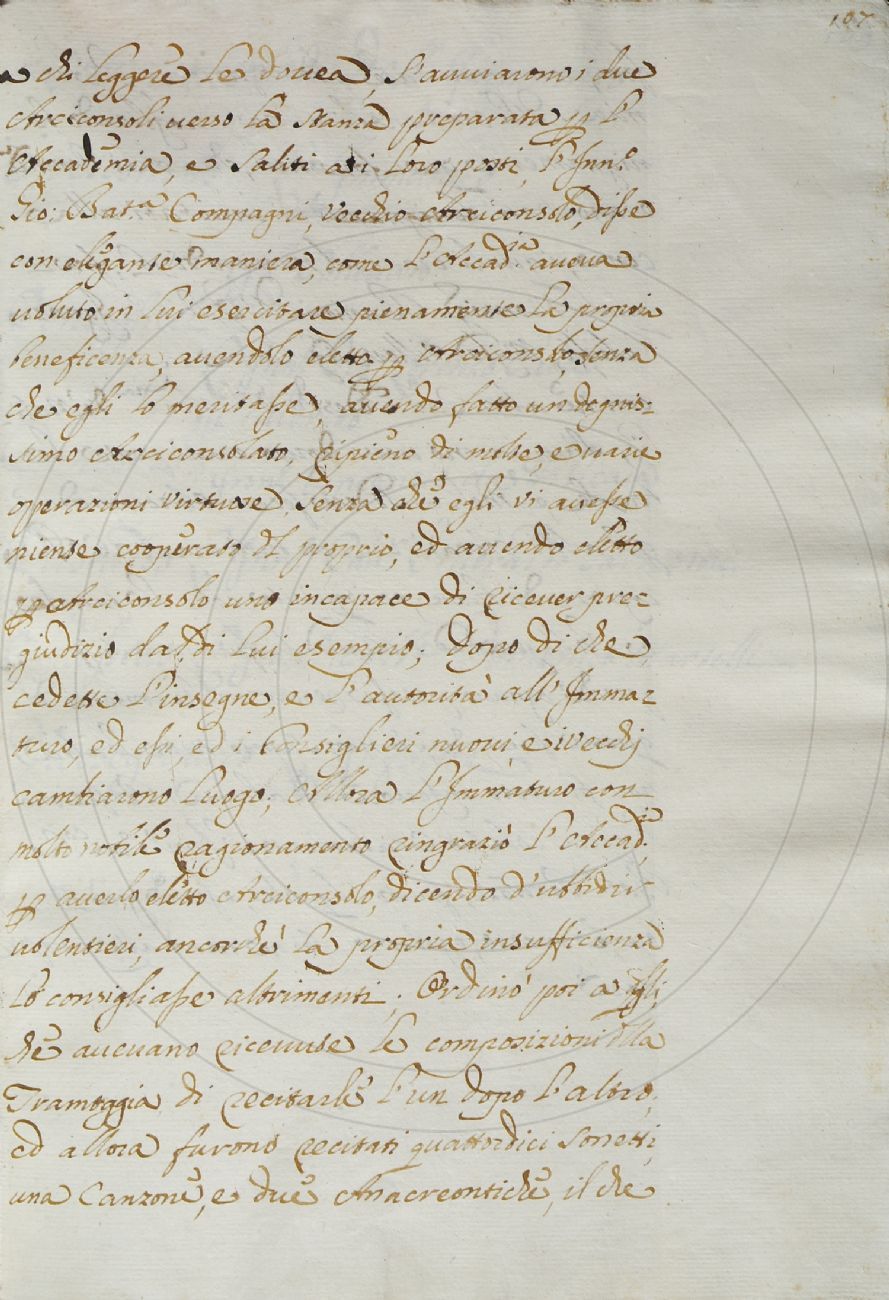 107
a chi leggere le dovea, s'avviarono i due
Arciconsoli verso la stanza preparata p l'
Accademia, e saliti a i loro posti, l'Inn.o
Gio: Bat.a Compagni, vecchio Arciconsolo, disse
con elegante maniera, come l'Accad.ia aveva
voluto in lui esercitare pienamente la propria
beneficenza, avendolo eletto p Arciconsolo, senza
che egli lo meritasse, avendo fatto un degnis=
simo Arciconsolato, ripieno di molte, e varie
operazioni virtuose, senza che egli vi avesse
niente cooperato dl proprio, ed avendo eletto
p Arciconsolo uno incapace di ricever pre=
giudizio dal di lui esempio; dopo di che
cedette l'insegne, e l'autorità all'Imma=
turo, ed essi, ed i Consiglieri nuovi, e i vecchj
cambiarono luogo; Allora l'Immaturo con
molto nobile ragionamento ringraziò l'Accad.ia
p averlo eletto Arciconsolo, dicendo d'ubbidir
volentieri, ancorchè la propria insufficienza
lo consigliasse altrimenti. Ordinò poi a
che avevano ricevute le composizioni dlla
Tramoggia di recitarle l'un dopo l'altro,
ed allora furono recitati quattordici sonetti,
una Canzone, e due Anacreontiche, il che